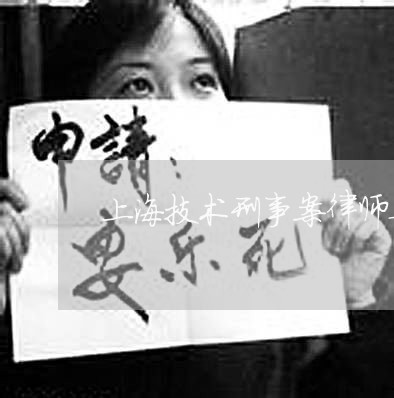 申請：
上海技术刑事案律师
安乐死